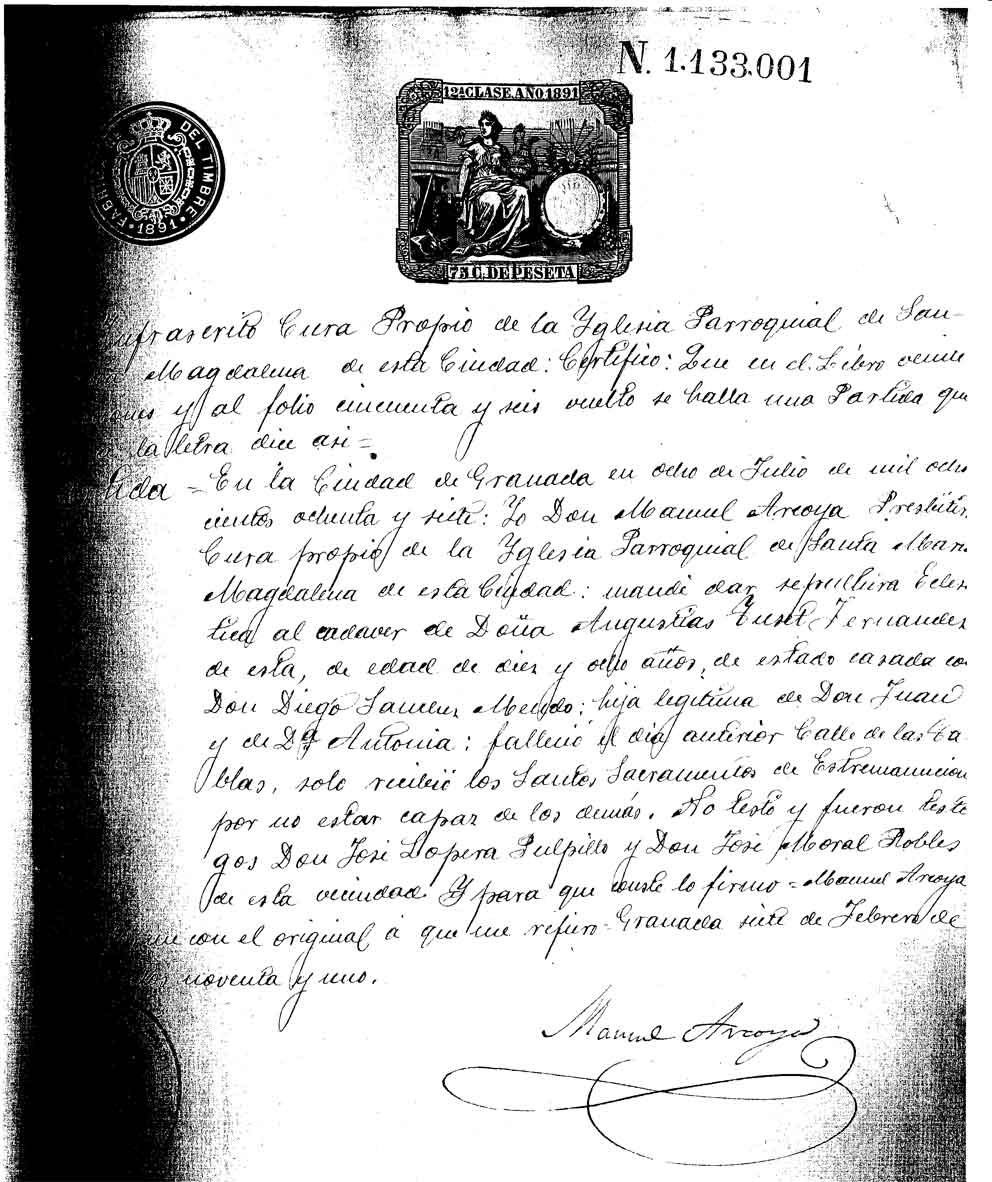 N. 1.133.001
12ª CLASE. AÑO 1891
DEL TIMBRE
1891
75 C. DE PESETA
nfrascrito Cura Propio de la Yglesia Parroquial de San-
Magdalena de esta Ciudad: Certifico: Que en el Libro veinte
y al folio cincuenta y seis vuelto se halla una Partida que
la letra dice asi=
tida = En la Ciudad de Granada en ocho de Julio de mil ocho
cientos ochenta y siete: Yo Don Manuel Arcoya Presbiter
Cura propio de la Yglesia Parroquial de Santa Mari
Magdalena de esta Ciudad: mandé dar sepultura Ecles
tica al cadaver de Doña Angustias Tuset Fernandez
de esta, de edad de diez y ocho años, de estado casada co
Don Diego Mendo; hija legitima de Don Juan
y de Dª Antonia: falleció el dia anterior Calle de las Ta
blas, solo recibió los Santos Sacramentos de Estremauncion
por no estar capaz de los demás. No testó y fueron teste
gos Don José Lopera Pulpillo y Don José Moral Robles
de esta vecindad. Y para que conste lo firmo = Manuel Arcoya
con el original á que me refiero = Granada siete de Febrero de
noventa y uno.
Manuel Arcoya